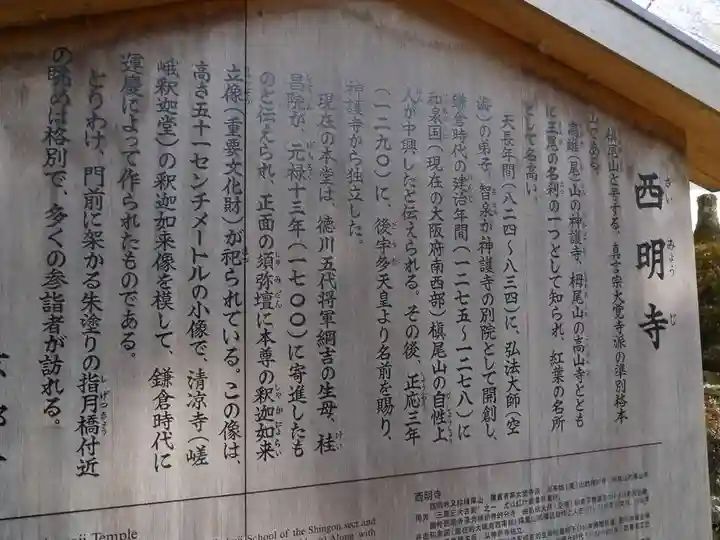 西明寺
さいみょうじ
槙尾山と号する、真言宗大覚寺派の準別格本
山である。
高雄(尾)山の神護寺、栂尾山の高山寺ととも
に三尾の名刹の一つとして知られ、紅葉の名所
として名高い。
天長年間(八二四～八三四)に、弘法大師(空
海)の弟子、智泉が神護寺の別院として開創し、
鎌倉時代の建治年間(一二七五～一二七八)に
和泉国(現在の大阪府南西部)槇尾山の自性上
人が中興したと伝えられる。その後、正応三年
(一二九〇)に、後宇多天皇より名前を賜り、
神護寺から独立した。
現在の本堂は、徳川五代将軍綱吉の生母、桂
昌院が、元禄十三年(一七〇〇)に寄進したも
のと伝えられ、正面の須弥壇に本尊の釈迦如来
立像(重要文化財)が祀られている。この像は、
高さ五十一センチメートルの小像で、清凉寺(嵯
峨釈迦堂)の釈迦如来像を模して、鎌倉時代に
運慶によって作られたものである。
とりわけ、門前に架かる朱塗りの指月橋付近
の眺めは格別で、多くの参詣者が訪れる。
Temple
School of the Shingon sect and
Along with
西明寺